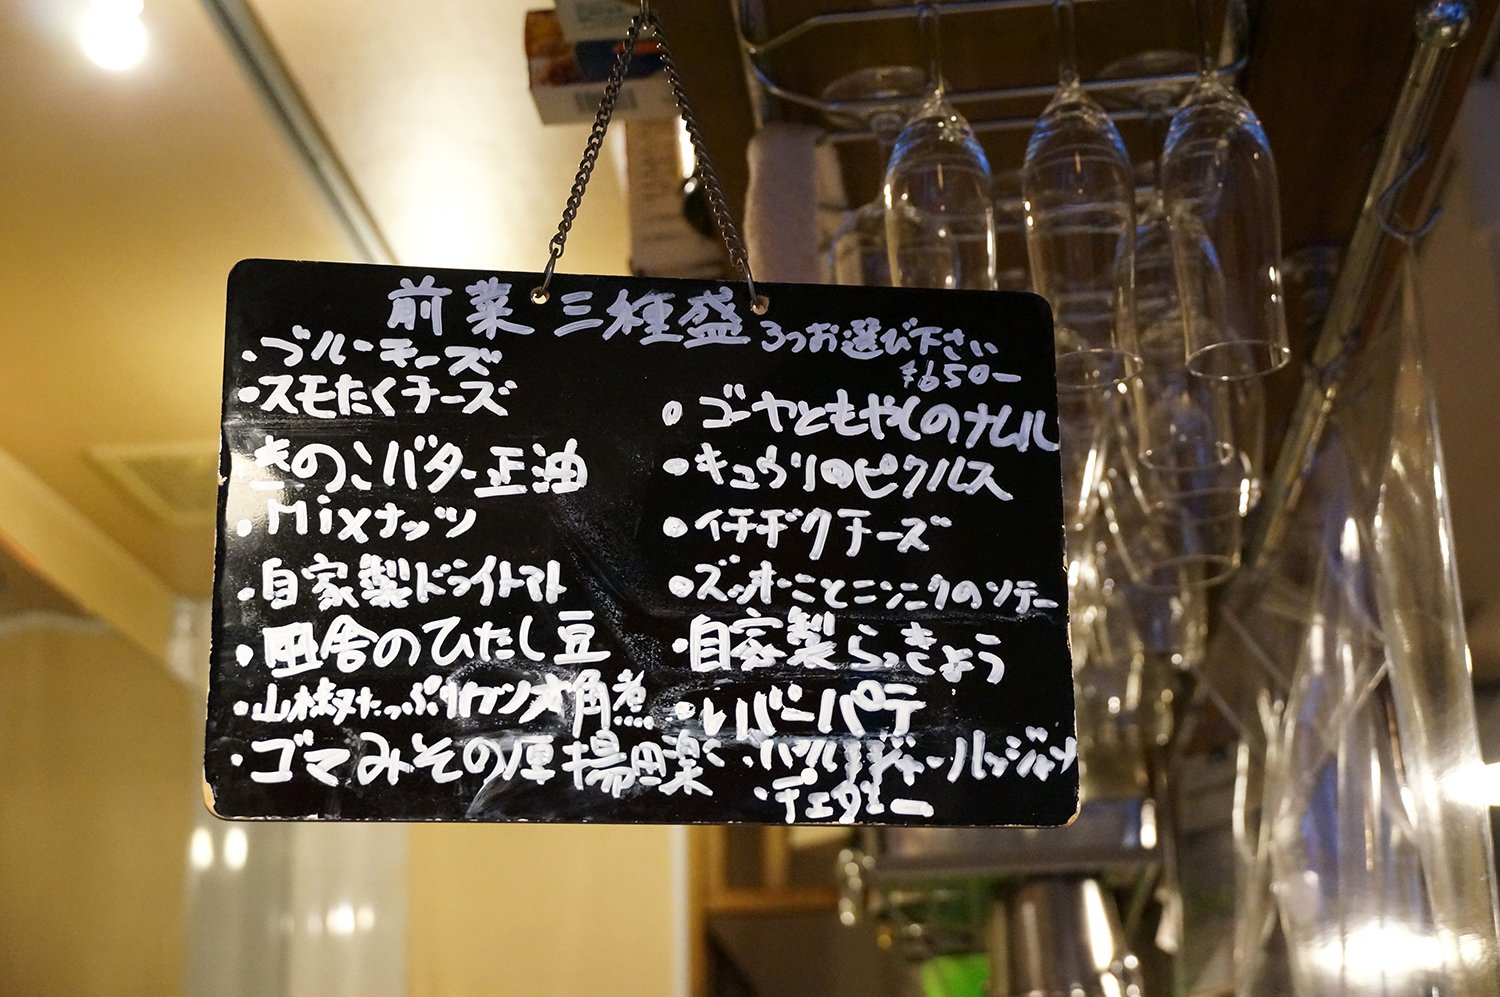 前菜三種盛 3つお選び下さい
¥650ー
・ブルーチーズ
・スモたくチーズ
きのこバター正油
・Mixナッツ
・自家製ドライトマト
・田舎のひたし豆
・山椒たっぷりカツオ角煮
・ゴマみその厚揚田楽
・ゴーヤともやしのナムル
・キュウリのピクルス
・イチヂクチーズ
・ズッキーニとニンニクのソテー
・自家製らっきょう
・レバーパテ
・ハツ
・チェダー